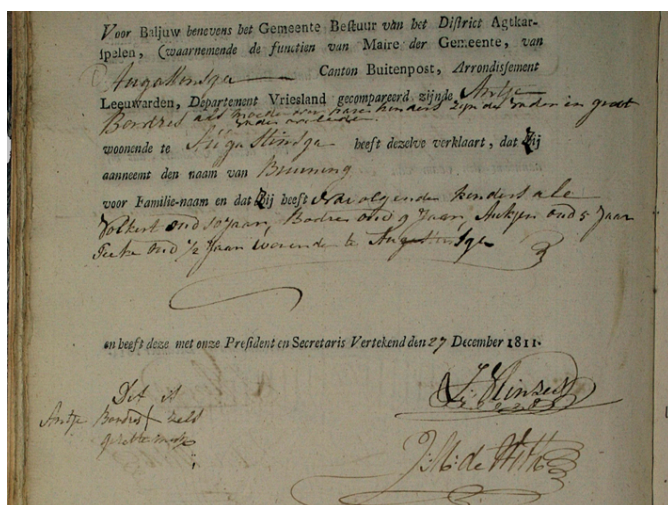 Voor Baljuw benevens het Gemeente Bestuur van het District Agtkar-
spelen, (waarnemende de functien van Maire der Gemeente, van
Augustinsga Canton Buitenpost, Arrondissement
Leeuwarden, Departement Vriesland gecompareerd zijnde Antje
Bondres als moeder over hare kinders zijnde vader
woonende te Augustinsga heeft dezelve verklaart, dat Zij
aanneemt den naam van Bruining
voor Familie-naam en dat Zij heeft de volgende kinders als
Volkert oud 10 Jaar, oud 9 Jaar, oud 5 Jaar
oud 1/2 Jaar wonende te Augustinsga
en heeft deze met onze President en Secretaris Vertekend den 27 December 1811.
Dit is
Antje Bondres zelf